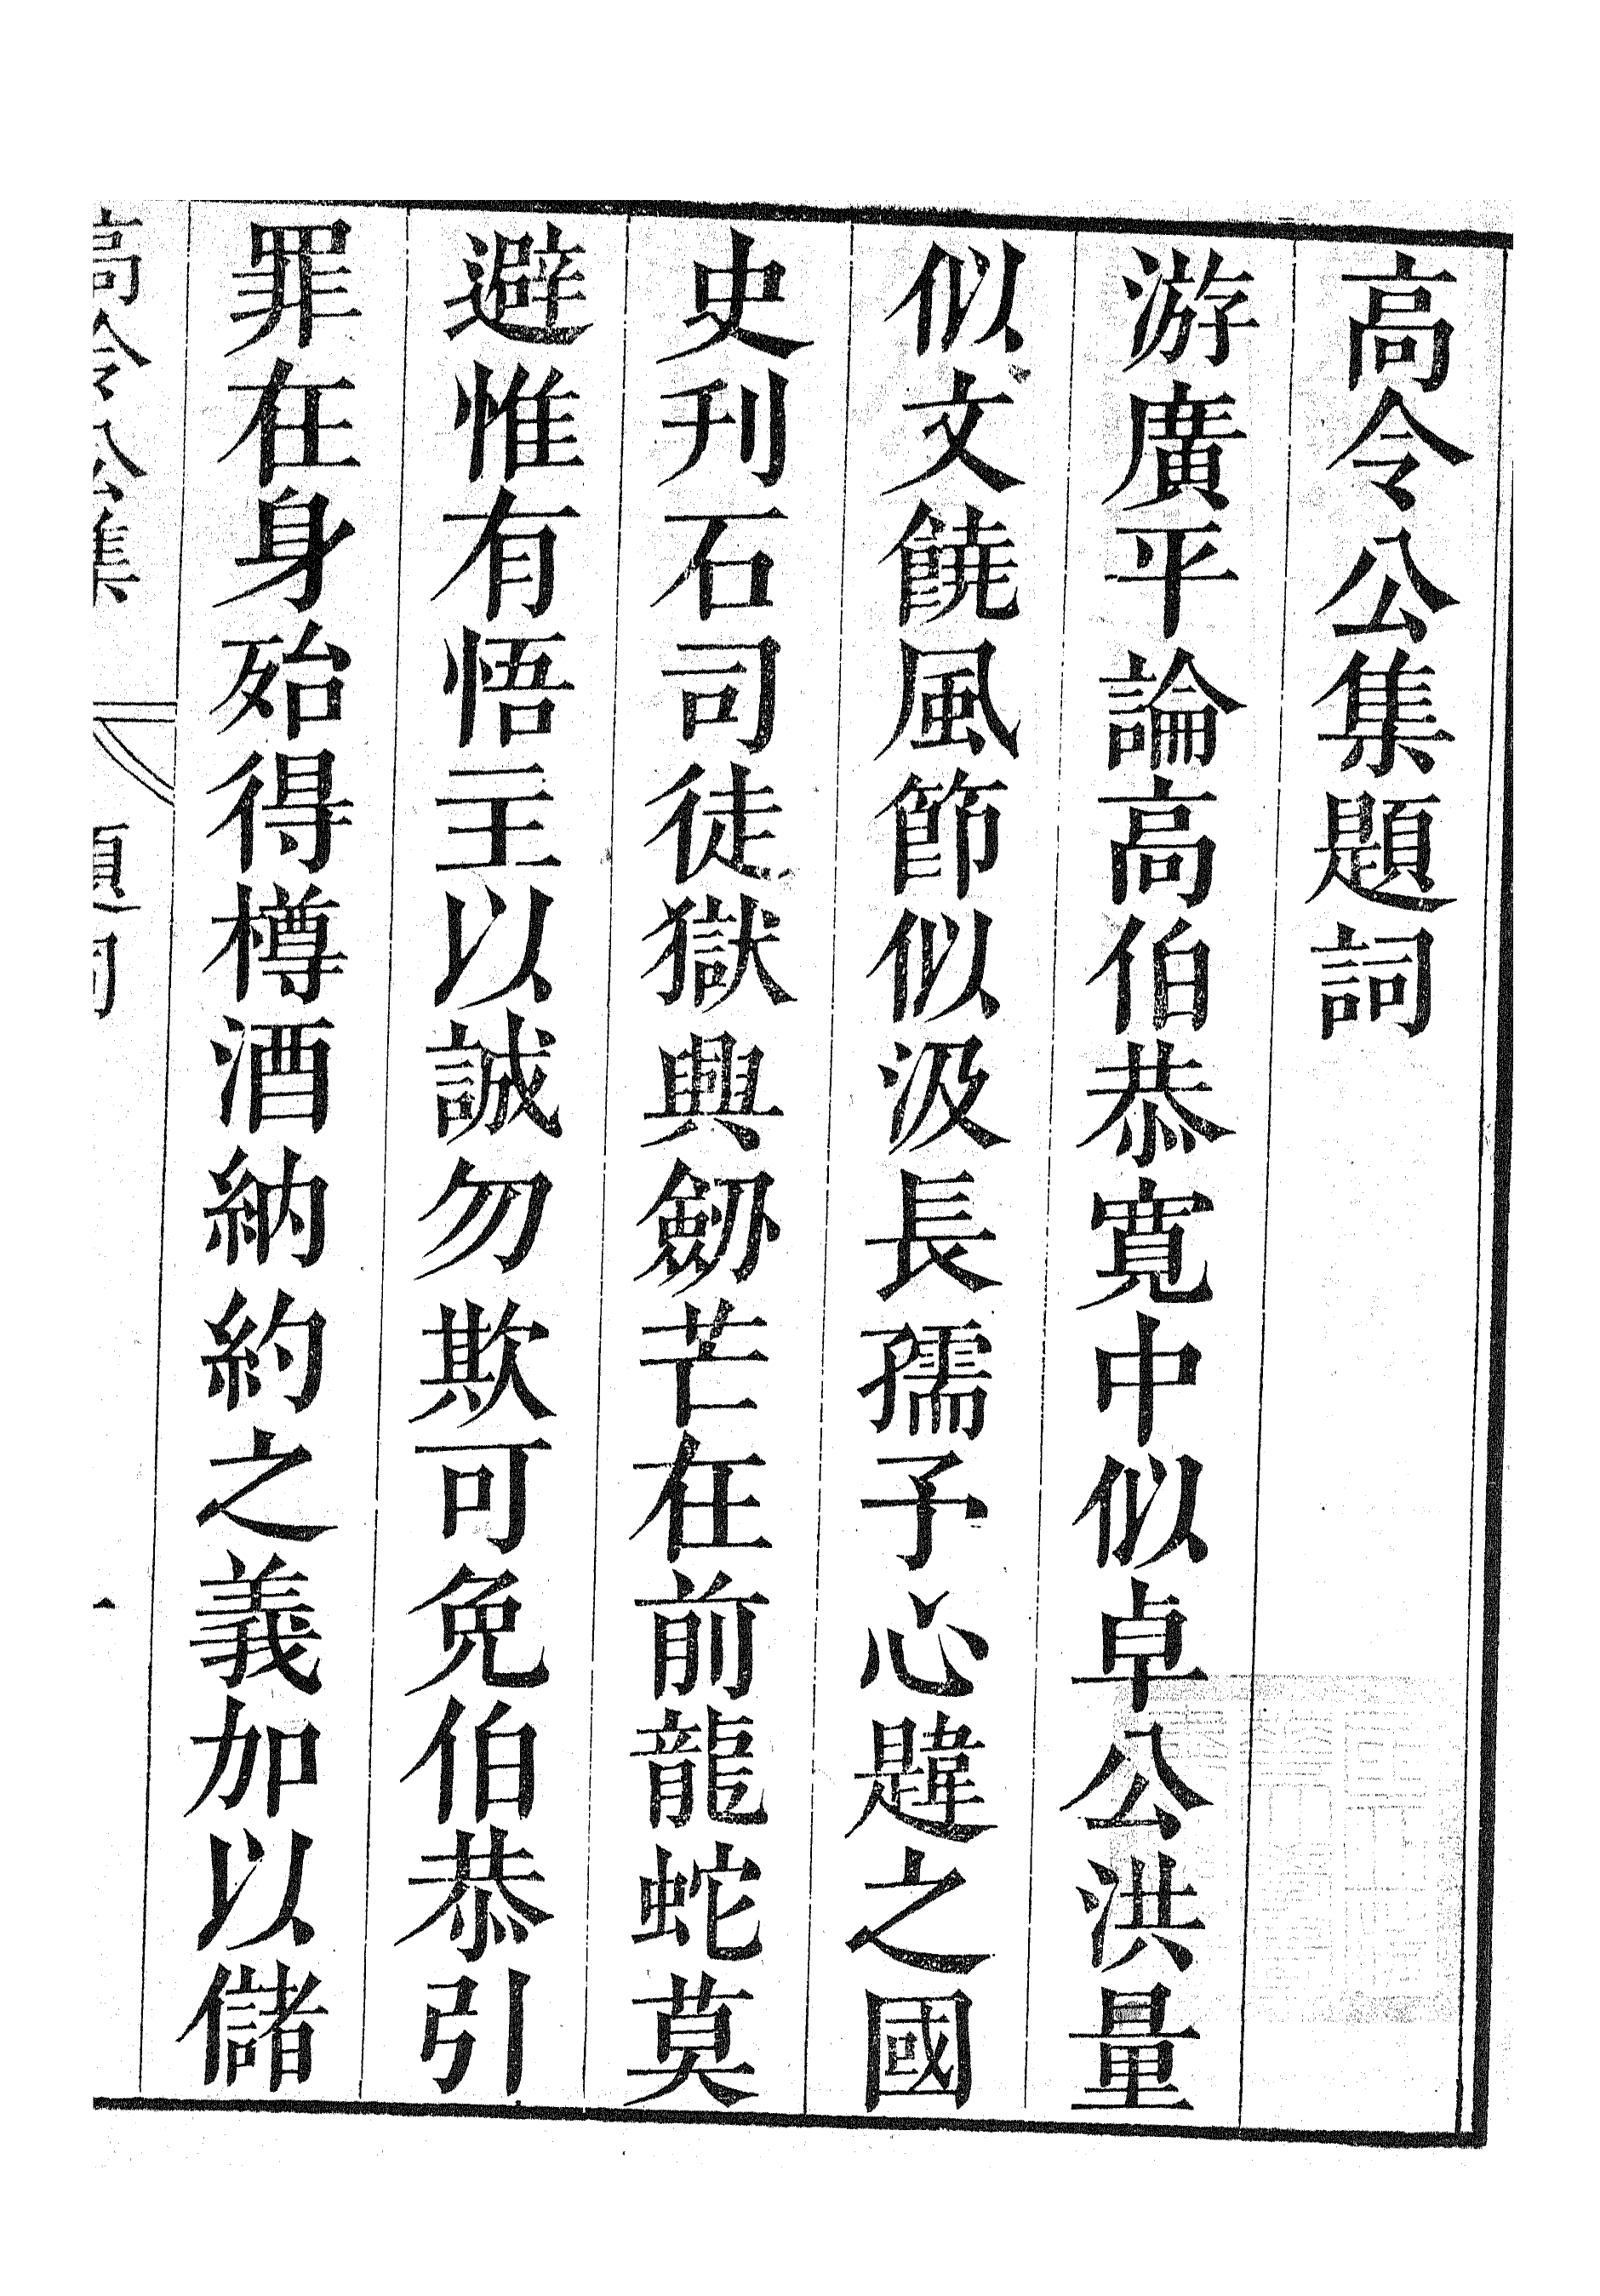 高令公集題詞
游廣平論高伯恭寬中似卓公洪量
似文饒風節似汲長孺子心韙之國
史刊石司徒獄興劒芒在前龍蛇莫
避惟有悟主以誠勿欺可免伯恭引
罪在身殆得樽酒納約之義加以儲
高令公集
題詞
一